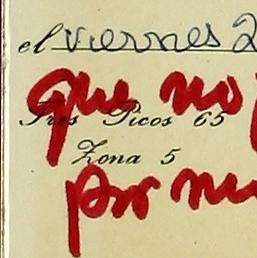 el viernes 2
que no
Tres Picos 65
Zona 5
por mi